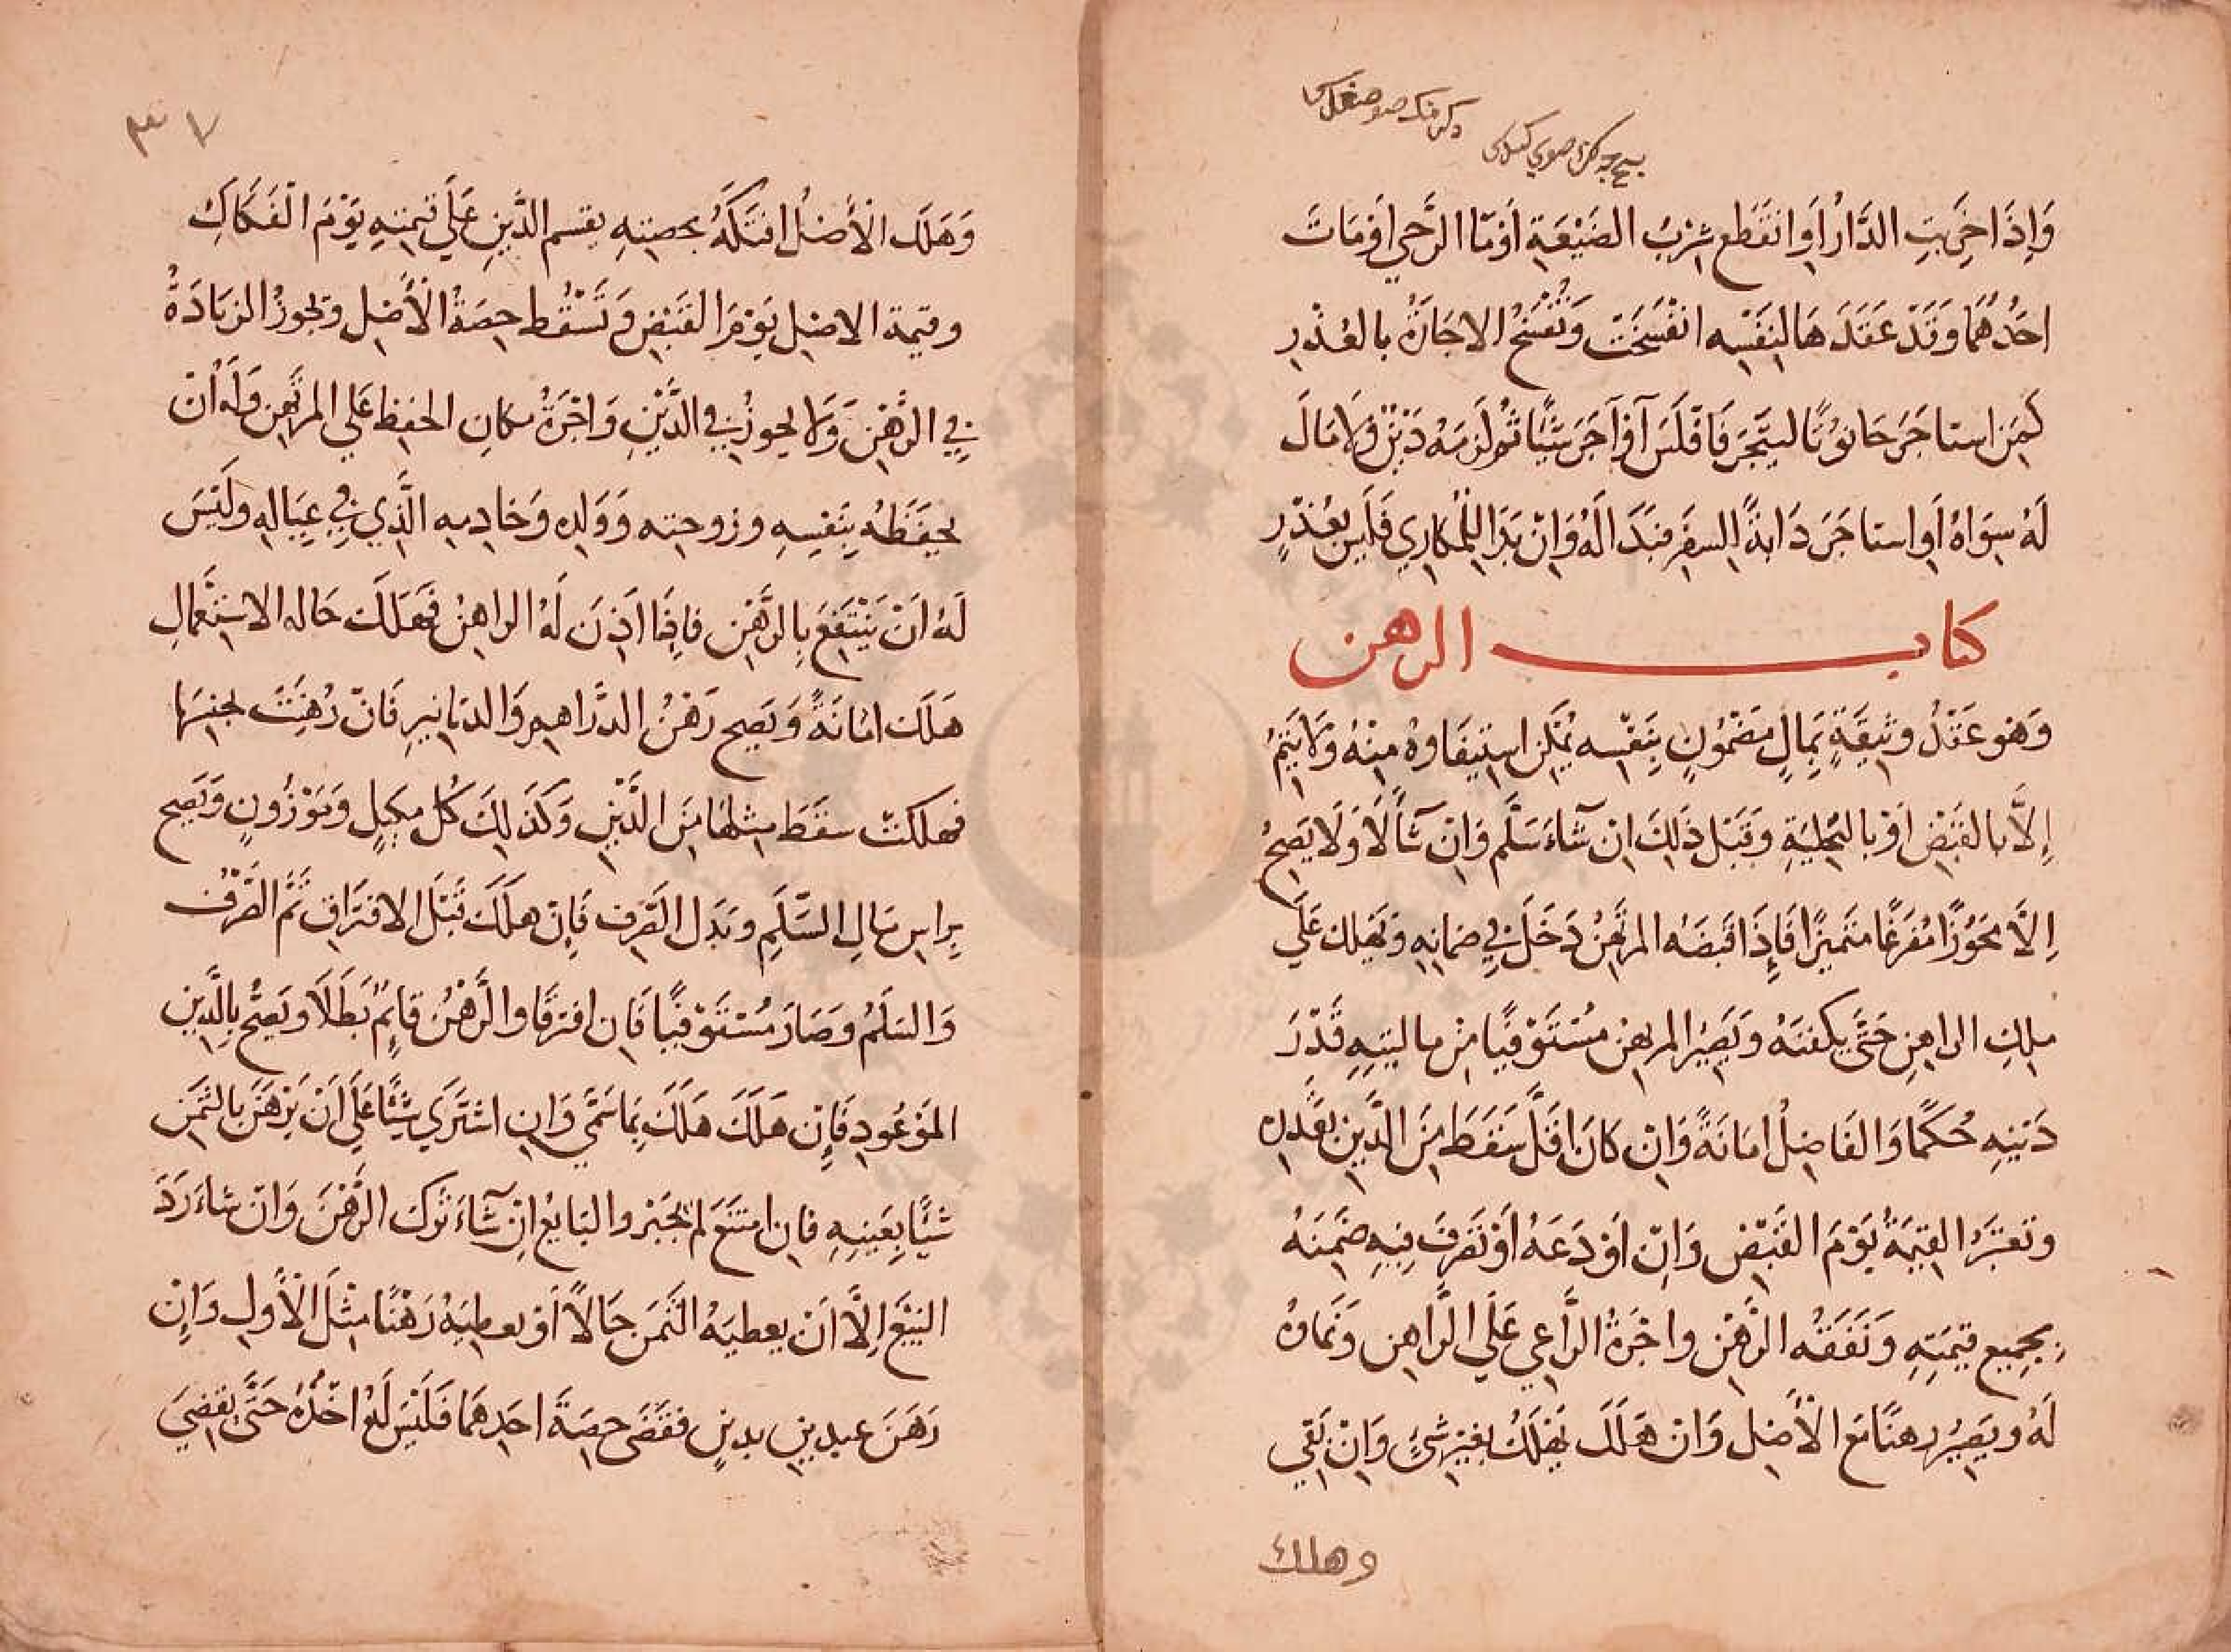 وَاِذَا خَرِبَتِ الدَّارُ اَوِ انقَطَع شِربُ الضَيْعَةِ اَوْ مَاَ الرَّحي اَوْ مَاتَ
احَدُهُمَا وَقَدْ عَقَدَهَا لِنَفْسِه انفَسَخَتْ وَتُفْسَخُ الاجَارَةُ بالعُذْرِ
كَمَن استاجَرَ حَانوُتًا ليتَّجَرَ فَافْلَسَ اَوْ اَجَرَ شَيًّا ثُمَّ لزمَهُ دَيْنٌ وَلَا مَالَ
لَهُ سِوَاهُ اَوِ استاجَرَ دَابةً للسفَر فبَدَا لَهُ وَاِنْ بَدَا لِلْمكارِي فَلَيس بعُذْرٍ
كتاب الرهن
وَهُو عَقْدُ وثيِقَةٍ بِمَالٍ مَضْمُونٍ بِنَفْسِه يُمْكِن استِيفَاوهُ مِنْهُ وَلَا يَتِمُ
اِلاَّ بالقَبْضِ اَوْ بالتخْلِيَةِ وقَبْل ذَلِكَ اِن شَاءَ سَلَّم وَاِنْ شَآ لَا وَلَا يَصِحُ
اِلاَّ مَحُوْزًا مُفَرَغًا متَميزًا فَاِذَا قَبضَه المرتَهِنُ دَخَلَ فِي ضمانِهِ وَيَهلِك عَلَي
ملِكِ الراهِنِ حَتَّي يكفنَهُ وَيَصِيْرُ المرتهن مُسْتَوْفيًا مِنْ ماليتِهِ قَدْرَ
دَيْنِهِ حُكمًا وَالفَاضِلُ امَانَةً وَاِنْ كَانَ اَقَلَّ سَقَطَ مِنَ الدَّينِ بقَدْرِه
وتعتَبَرُ القِيْمَةُ يَوْمَ القَبْضِ وَاِنْ اَوْدَعَهُ اَوْ تَصَرفَ فِيهِ ضَمِنَهُ
بجَمِيع قيمَتِهِ وَنَفَقَةُ الرَّهْن واجْرَةُ الرَّاعِي عَلَي الرَّاهِن وَنَمَاوهُ
لَهُ ويَصِيْرُ رهنًا مَع الاْصْل وَان هَلَكَ يَهْلَكُ بغيْرِ شيءٍ وَاِنْ بَقِي
وهلك
٣٧
وَهَلَكَ الاْصْلُ افتكَّهُ بحصتِهِ يقسم الدَّينِ عَلَي قيمتِهِ يَوْمَ الْفَكَاكِ
وقيمة الاصْلِ يَوْمَ القَبْضِ وَتَسْقُط حِصَةُ الْأَصْلِ وتجوزُ الزيَادَةُ
فِي الرَّهْنِ وَلَا يجوزُ فِي الدَّيْنِ وَاجْرَةُ مكَانِ الحِفظِ عَلي المرتَهِن وَلَهُ اَنْ
يحفَظَهُ بِنَفْسِهِ وزوجتِه وَوَلدِه وَخادِمِه الَّذِي فِي عِيَالِهِ وَلَيْسَ
لَهُ اَنْ يَنْتَفِعَ بِالرَّهْن فَاِذَا اَذِنَ لَهُ الراهِنُ فَهَلَكَ حَاله الاسْتِعْمالِ
هَلَكَ امَانَةً وَيَصِح رَهْنُ الدَّرَاهِمِ وَالدنانيرِ فَانْ رُهِنَتْ بجنِسِهَا
فهلكتْ سقَطَ مِثلهَا مِنَ الدَّيْنِ وَكَذَلِكَ كُل مكِيلٍ وَمَوْزُونٍ وَيَصِح
بِراسِ مَالِ السَّلَمِ وبَدلِ الصَرفِ فَاِن هلَكَ قَبْلَ الافترَاقِ تَمَّ الصَّرْفُ
وَالسَلَمُ وَصَارَ مُسْتَوْفيًا فَاِن افترقَا والرَّهْنُ قَايِمٌ بَطَلَا وَيَصِحُ بِالدَّينِ
المَوْعُودِ فَاِن هَلَكَ هَلَكَ بِمَا سَمَّي وَاِن اشترَي شَيْئًا عَلَي اَنْ يَرْهَنَ بالثَّمَن
شَيًّا بِعَينِهِ فَاِن امتَنَعَ لم يُجْبَر والبَايعُ اِنْ شَآءَ ترَكَ الرَّهْنَ وَان شاءَ رَدَ
البَيْعَ اِلَّا اَن يعطيَهُ الثَّمَن حَالاًّ اَوْ يعطيَهُ رَهْنًا مِثْلَ الْأَولِ وَاِنْ
رَهَنَ عبدينِ بدينٍ فقَضَى حِصَةَ احَدِهمَا فَلَيْسَ لَهُ اخْذُهُ حَتَّي يَقضِيَ